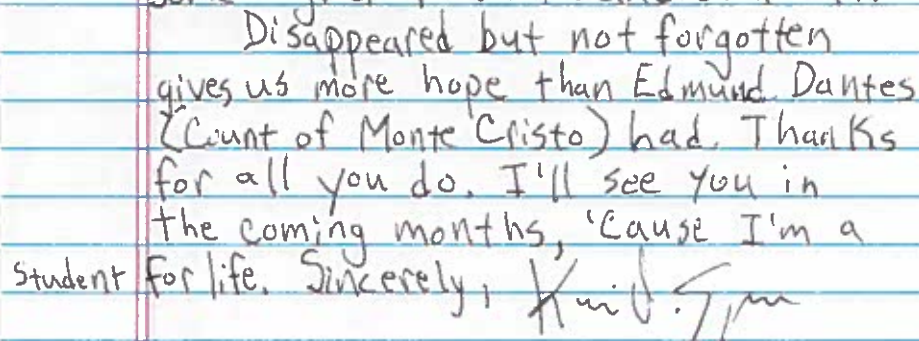 Disappeared but not forgotten
gives us more hope than Edmund Dantes
(Count of Monte Cristo) had. Thanks
for all you do. I'll see you in
the coming months, 'Cause I'm a
student for life. Sincerely,